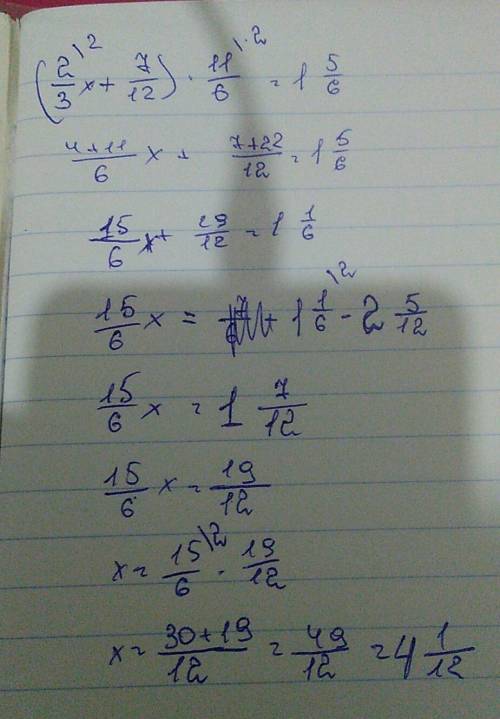 (2/3 \2 x + 7/12) · 11/6 \2 = 1 5/6
4+11/6 x + 7+22/12 = 1 5/6
15/6 x + 29/12 = 1 1/6
15/6 x = 1 1/6 \2 - 2 5/12
15/6 x = 1 7/12
15/6 x = 19/12
x = 15/6 \2 - 19/12
x = 30+19/12 = 49/12 = 4 1/12